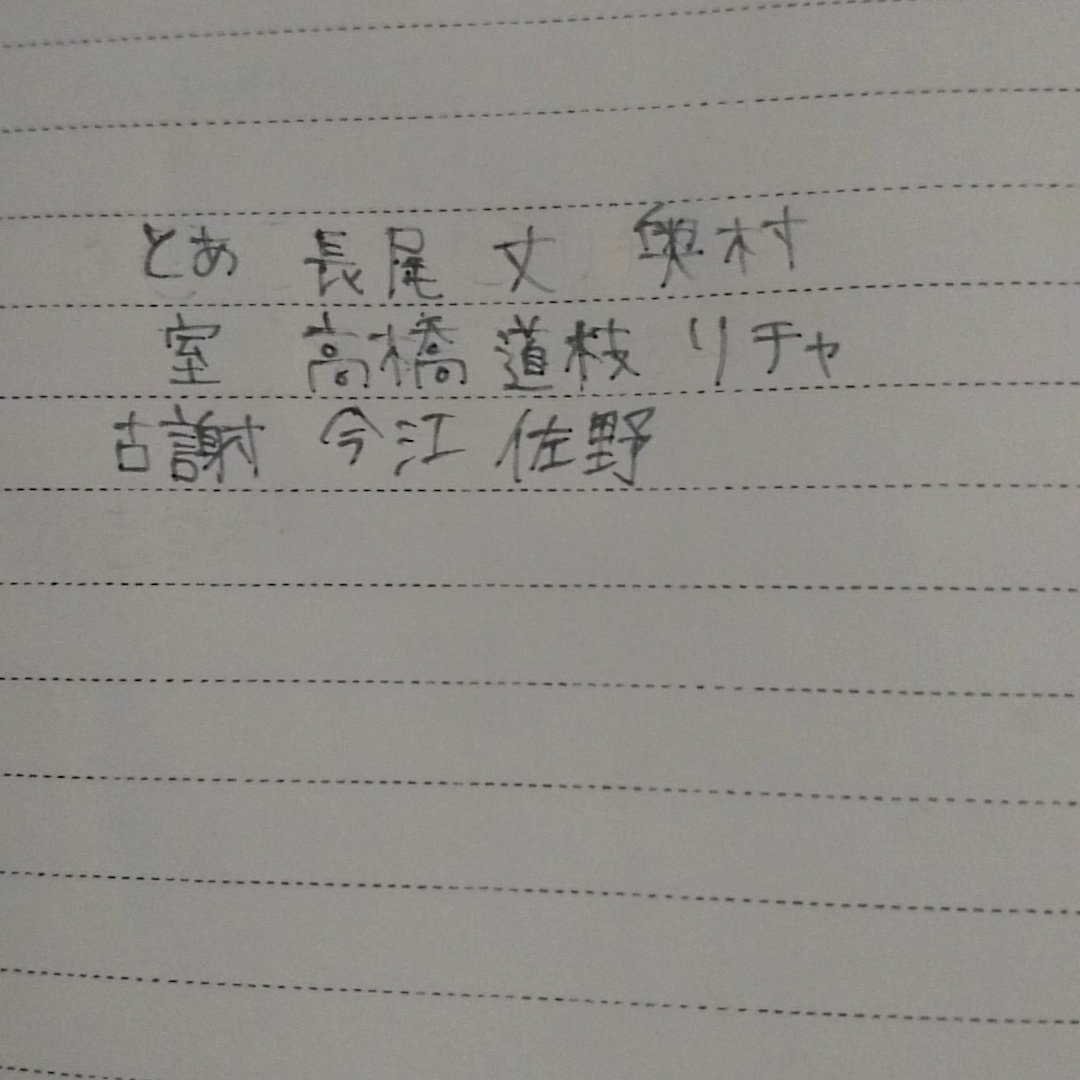 とあ 長尾 丈 奥村
室 高橋 道枝 リチャ
古謝 今江 佐野